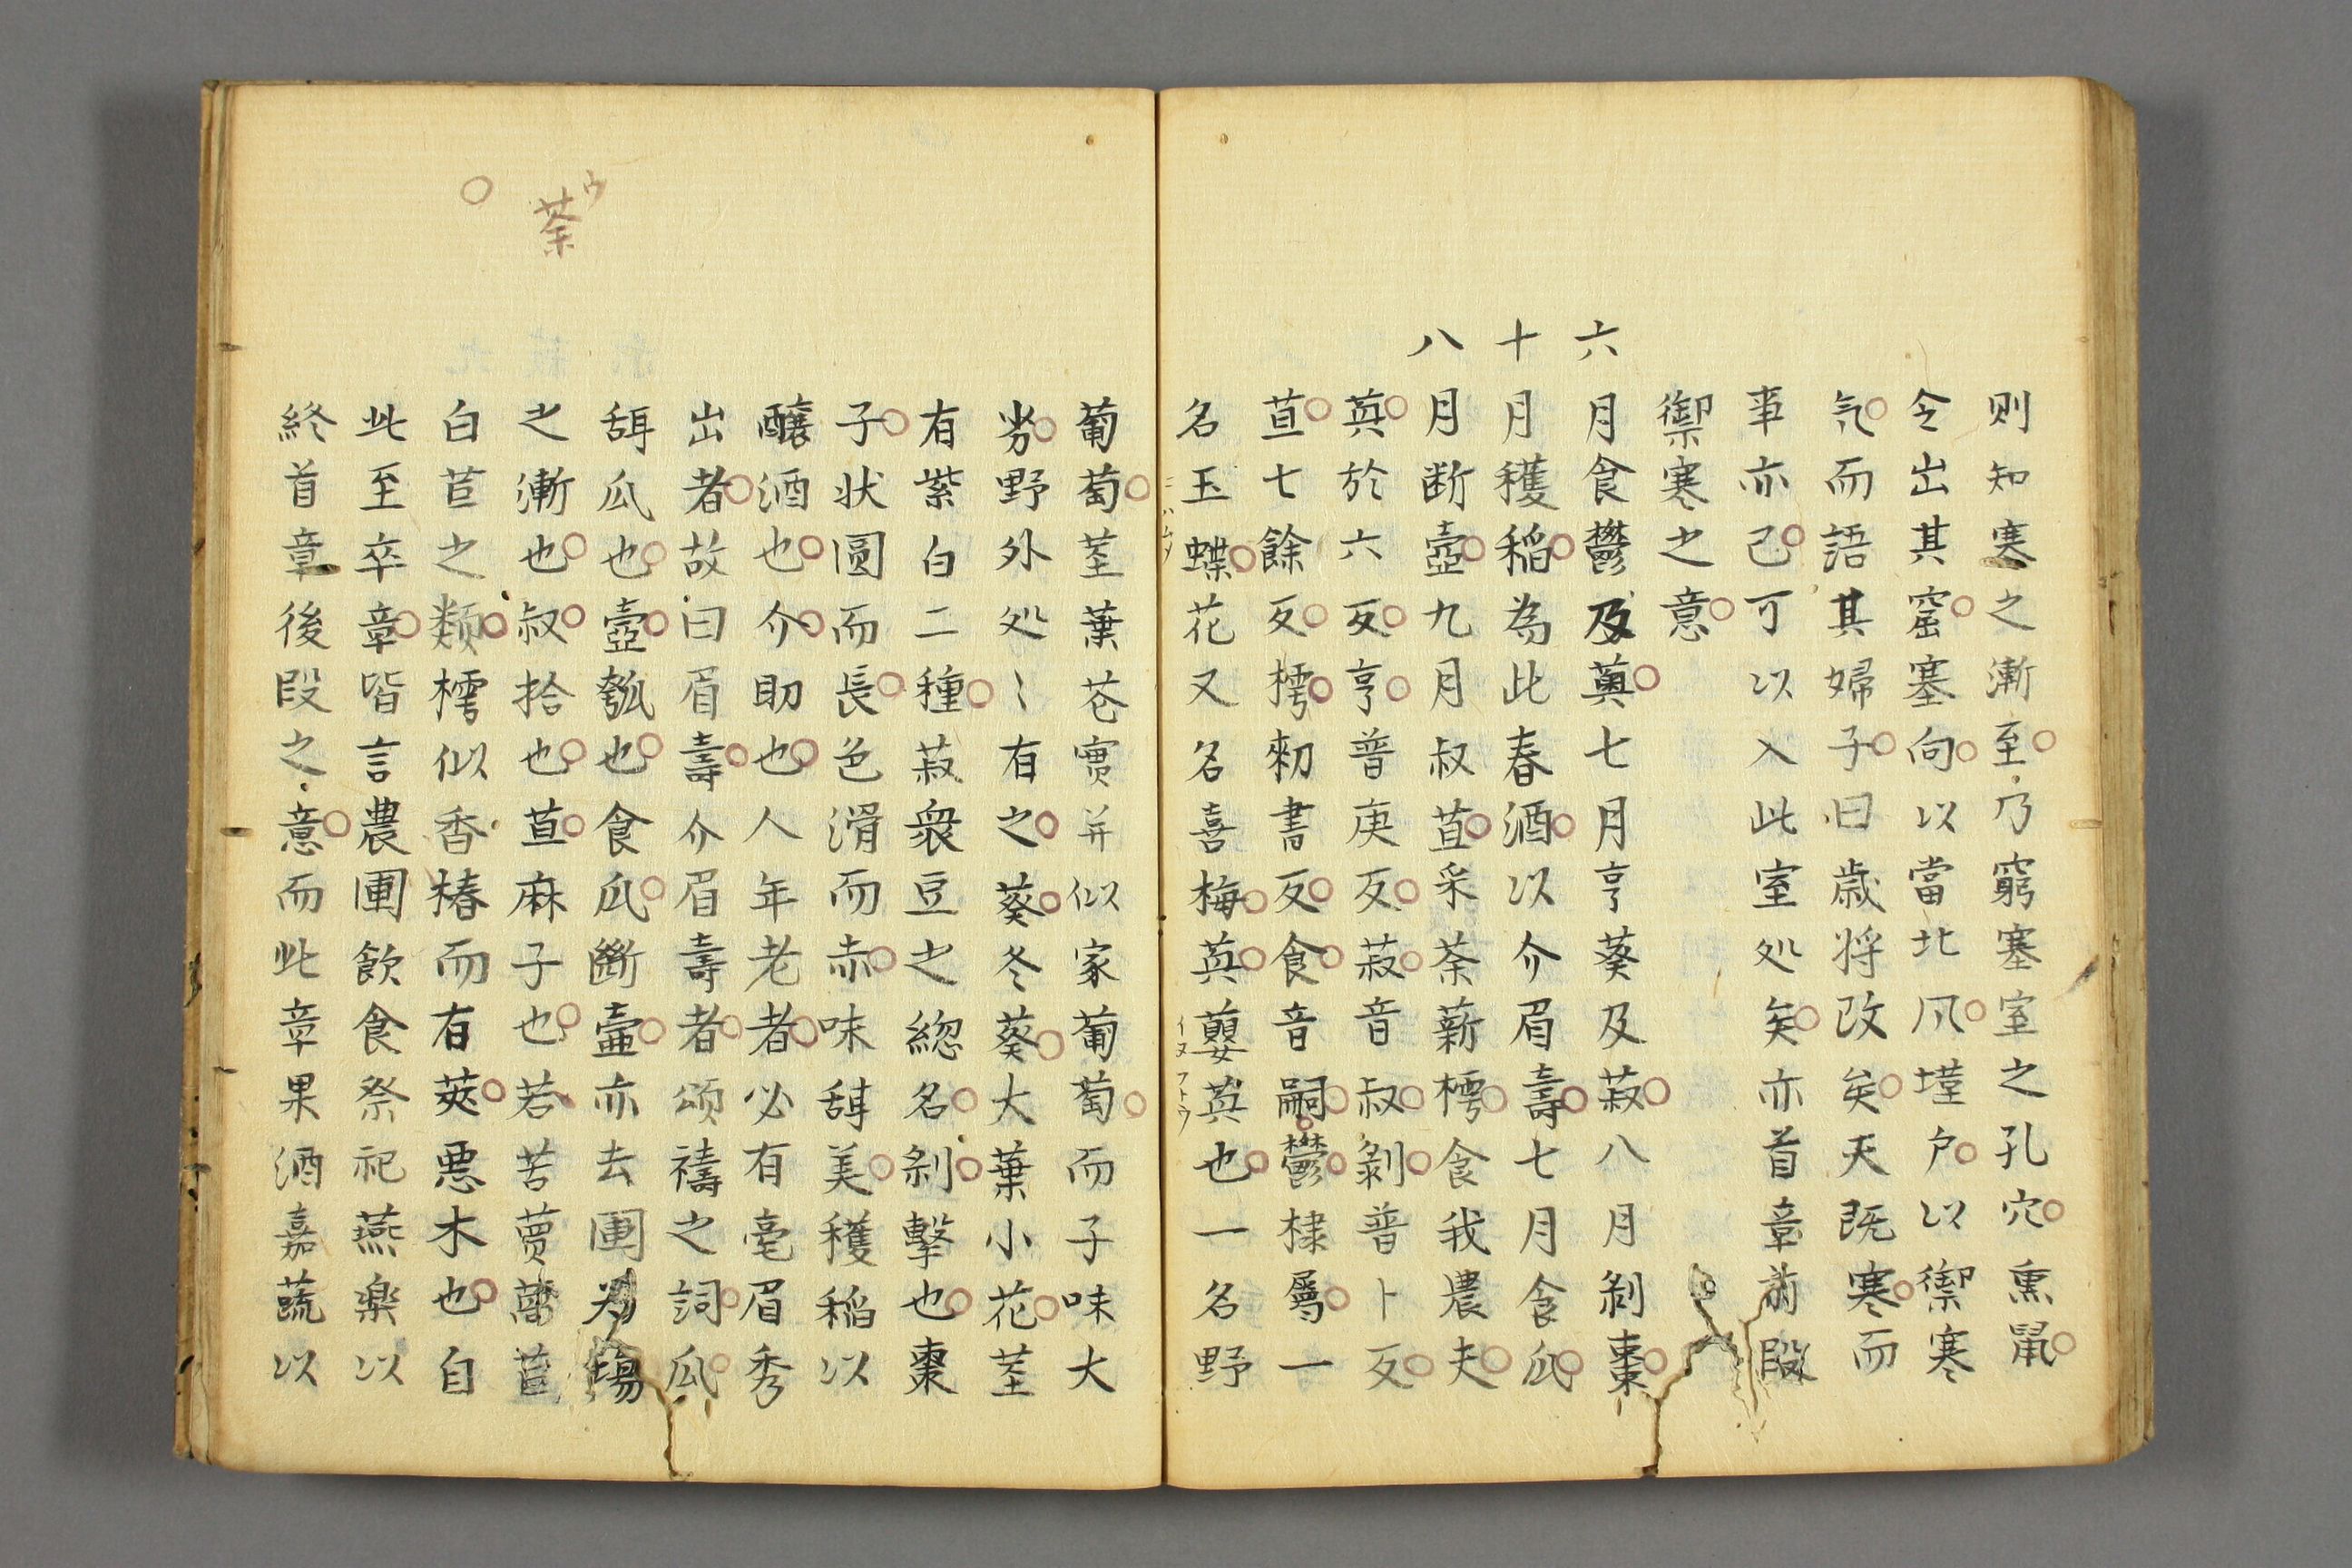 則知寒之漸至乃窮塞室之孔穴熏鼠
令出其窟塞向以當北风墐户以禦寒
気而語其婦子曰歳将改矣天既寒而
事亦已可以入此室処矣亦首章前段
禦寒之意
六月食鬱及薁七月亨葵及菽八月剝棗
十月穫稲為此春酒以介眉壽七月食瓜
八月断壺九月叔苴采荼薪樗食我農夫
薁於六反亨普庚反菽音叔剝普卜反
苴七餘反樗勑書反食音嗣鬱棣屬一
名玉蝶花又名喜梅薁蘡薁也一名野
葡萄茎葉苍實并似家葡萄而子味大
劣野外処〻有之葵冬葵大葉小花茎
有紫白二種菽衆豆之緫名剝擊也棗
子状圓而長色滑而赤味甜美穫稲以
釀酒也介助也人年老者必有毫眉秀
出者故曰眉壽介眉壽者頌禱之詞瓜
甜瓜也壺瓠也食瓜斷壷亦去圃为場
之漸也叔拾也苴麻子也若苦蕒萵苣
白苣之類樗似香椿而有莢悪木也自
此至卒章皆言農圃飲食祭祀燕樂以
終首章後段之意而此章果酒嘉蔬以
ウ
荼
イヌフトウ